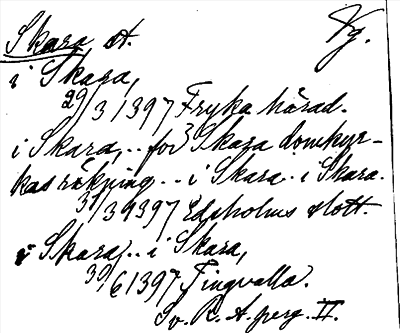 Skara, st. Vg.
i Skara,
29/3 1397 Fryka härad.
i Skara,.. for Skara domkyr-
kas räkning.. i Skara.. i Skara.
31/3 1397 Edsholms slott.
i Skara,.. i Skara,
30/6 1397 Tingvalla.
Sv. R. A. perg. II.